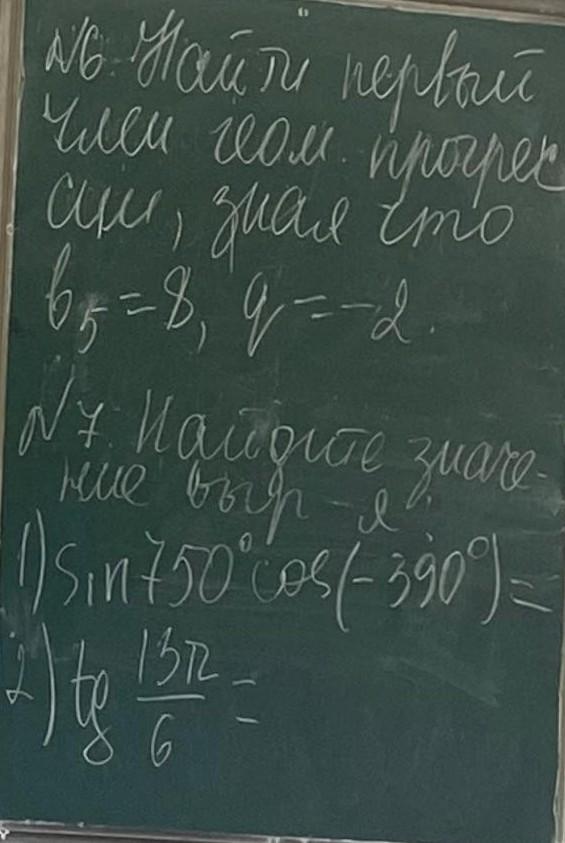 №6. Найти первый
член геом. прогрес
сии, зная что
b₅=8, q=-2.
№7. Найдите значе-
ние выр-я
1) sin750°cos(-390°)=
2) tg 13π/6 =